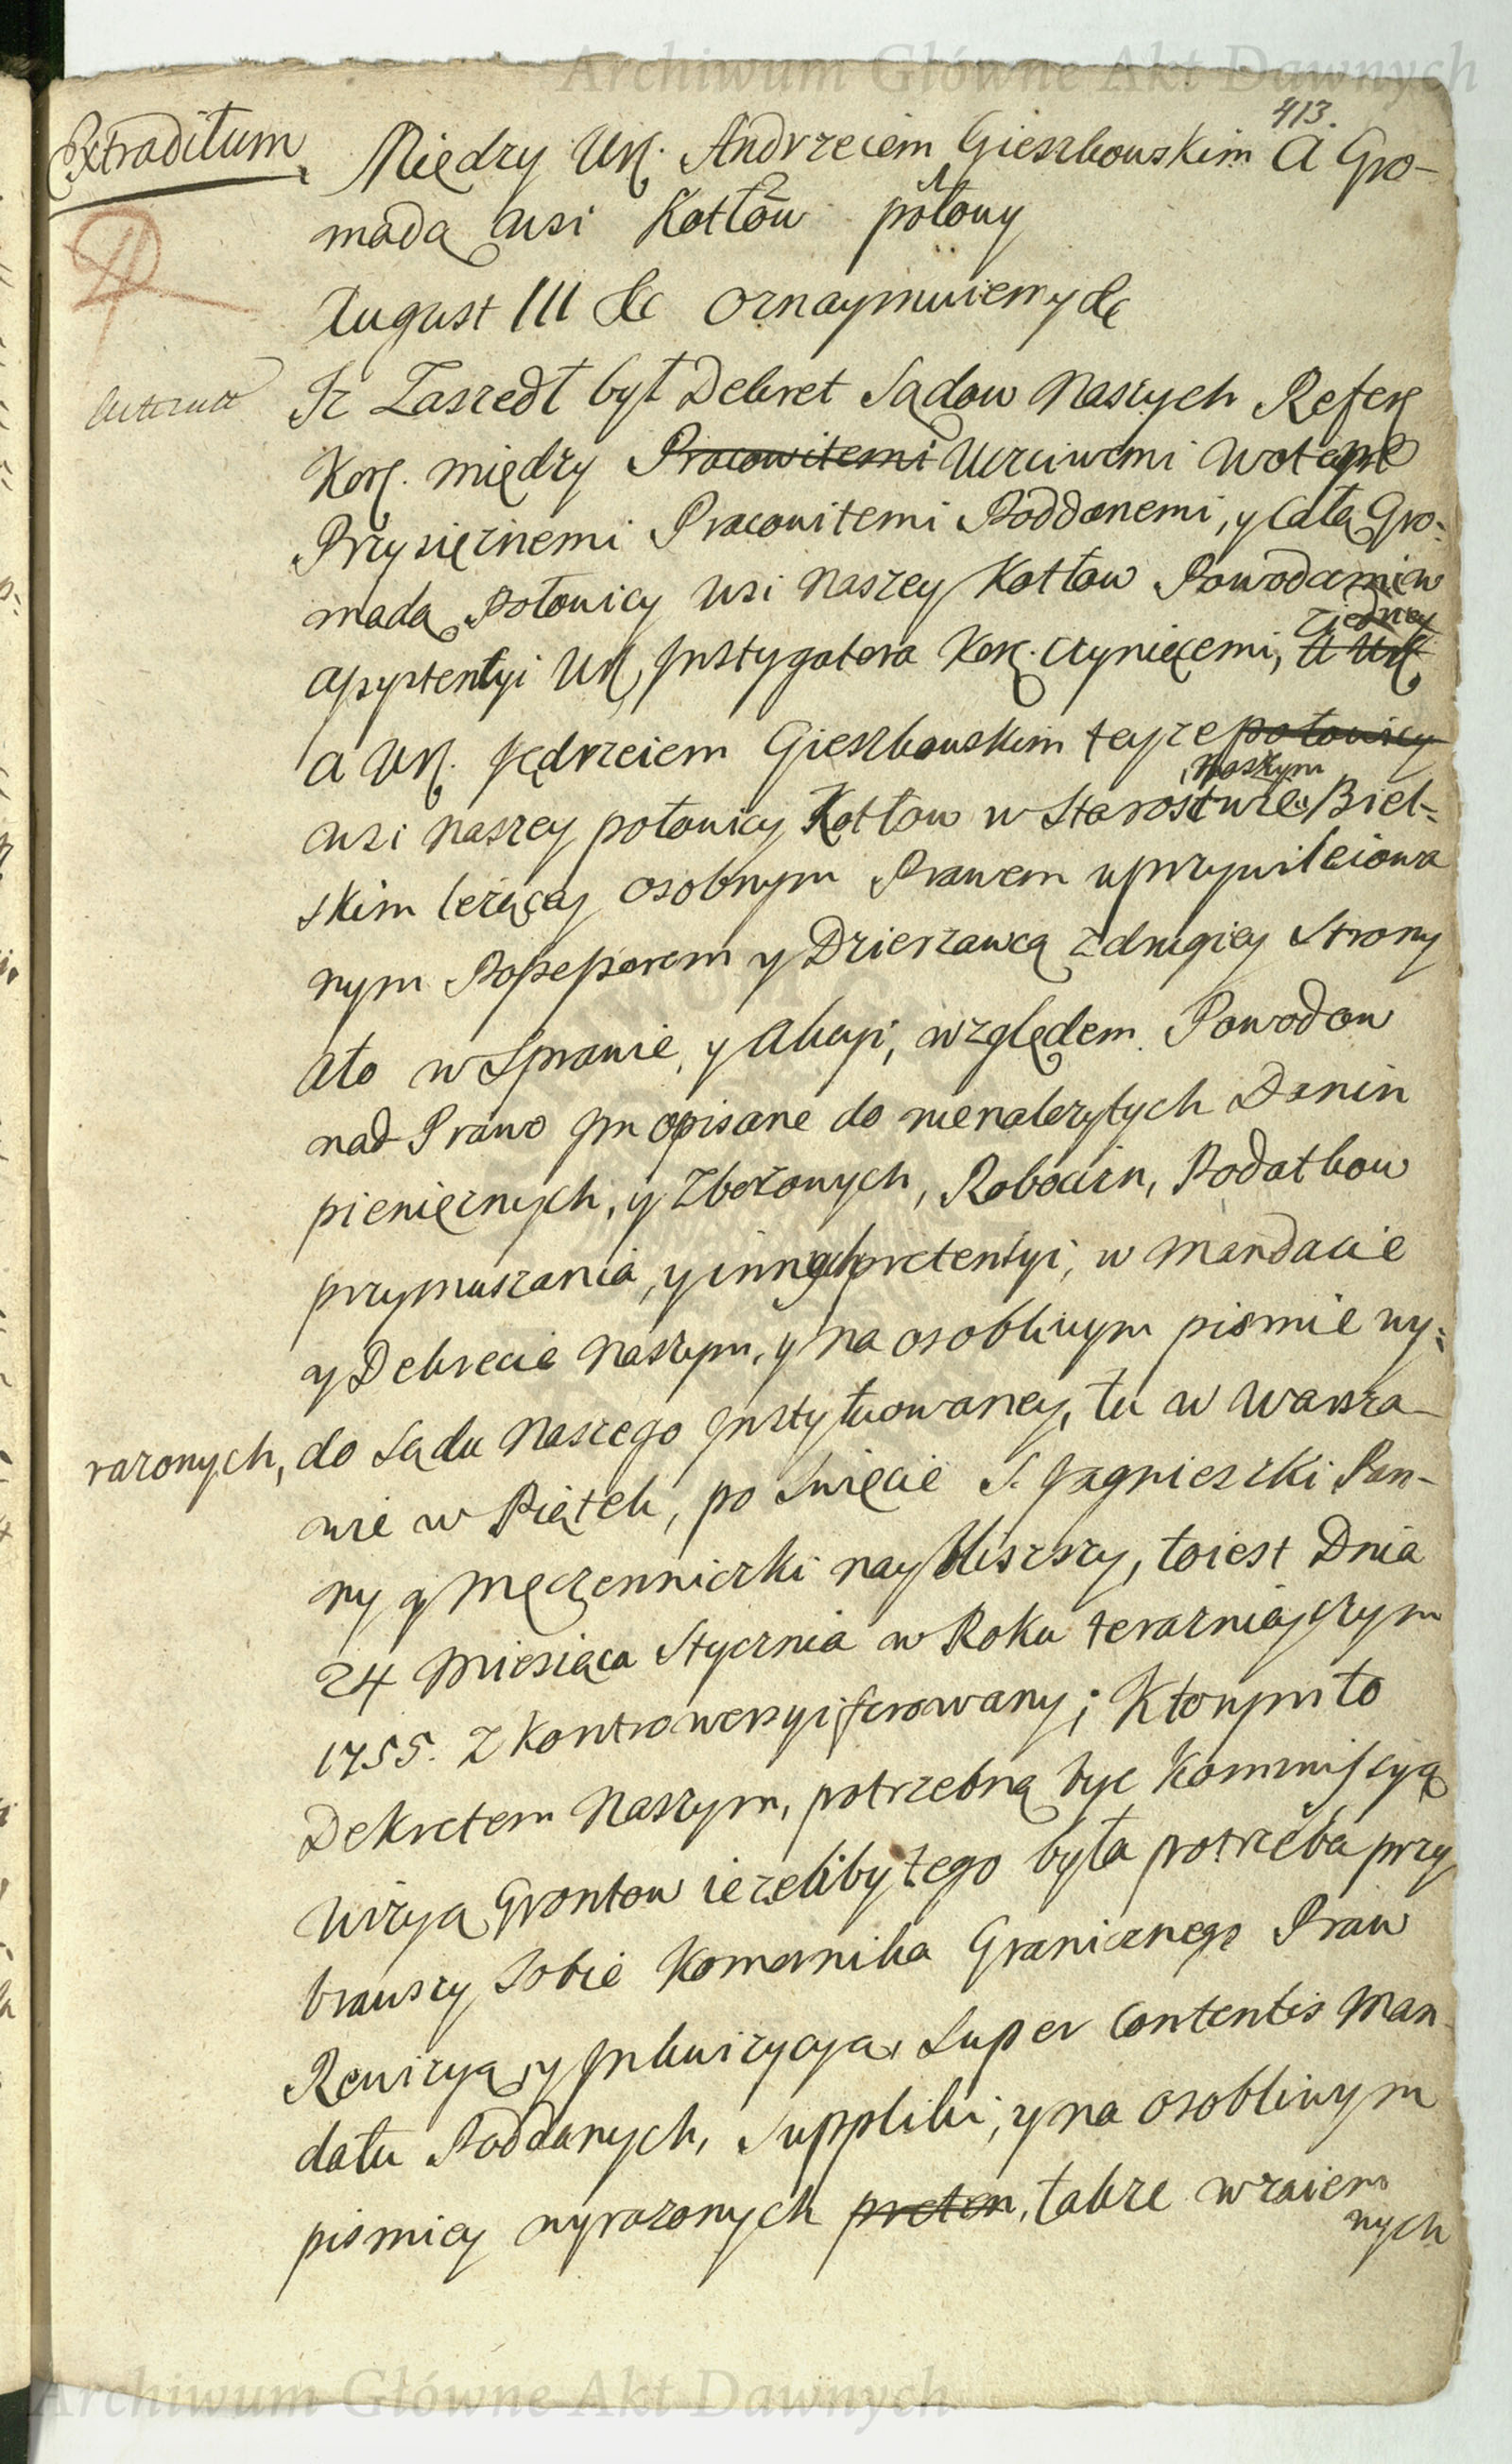 Archiwum Główne Akt Dawnych
413.
Extraditum
Między Ur. Andrzeiem Gieszkowskim A Gro-
mada wsi Kotłow połowy
August III &c Oznaymuiemy &c
Iz Zaszedł był Dekret Sądow Naszych Refer.
Kor. między Pracowitemi Uczciwemi Wotem
Przysięznemi Pracowitemi Poddanemi, y Całą Gro-
madą Połowicy wsi Naszey Kotłow Powodami w
assystentyi Ur. Instygatora Kor. Czyniącemi, A Ur.
z iedney
a Ur. Jędrzeiem Gieszkowskim teyze połowicy
wsi Naszey połowicy Kotłow w Starostwie Biel-
naszym
skim leżącey osobnym Prawem uprzywileiowa
nym Possessorem y Dzierzawcą z drugiey Strony
ato w Sprawie, y Akcyi, względem Powodow
nad Prawo Im opisane do nienalezytych Danin
pieniężnych, y Zbożowych, Robocizn, Podatkow
przymuszania, y innych pretentyi, w Mandacie
y Dekrecie Naszym, y na osobliwym pismie wy-
rażonych, do Sądu Naszego Instytuowaney, tu w Warsza-
wie w Piątek, po Swięcie S. Jagnieszki Pan-
ny y Męczenniczki nayblisszy, toiest Dnia
24 Miesiąca Stycznia w Roku terazniayszym
1755. Z Kontrowersyi ferowany; Ktorym to
Dekretem Naszym, potrzebną byc Kommissyą
Wizyą Grontow iezeliby tego była potrzeba przy
brawszy Sobie Komornika Granicznego Praw
Rewizyą, y Inkwizycyą, Super Contentis Man-
datu Poddanych, Suppliki, y na osobliwym
pismiey wyrazonych preten, takze wzaiem
nych
Archiwum Główne Akt Dawnych